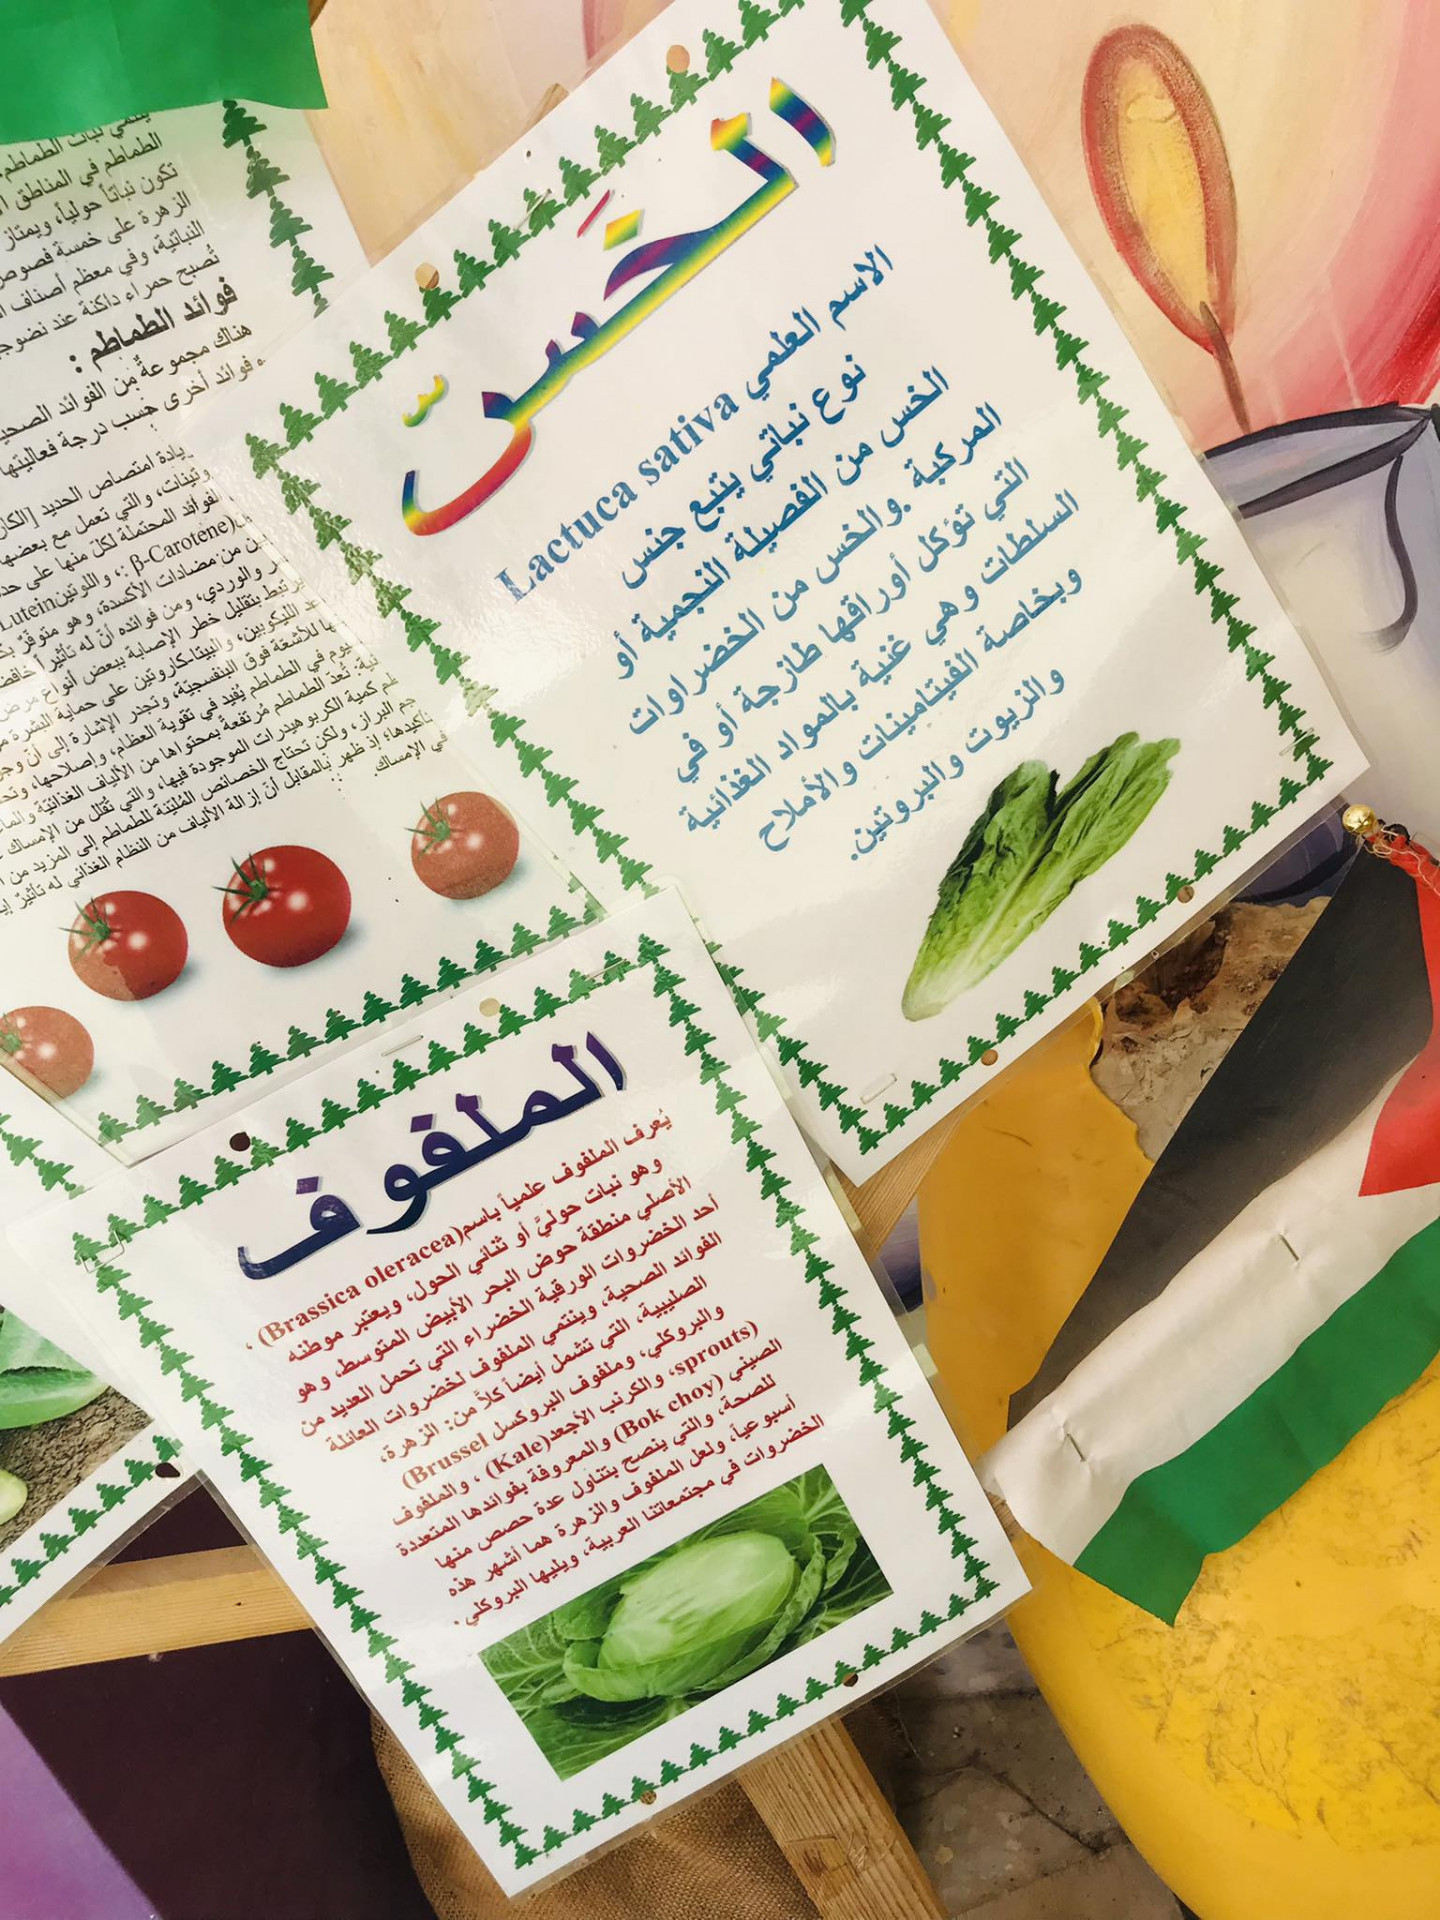 الخَسّ
الاسم العلمي Lactuca sativa
نوع نباتي يتبع جنس
الخس من الفصيلة النجمية أو
المركبة .والخس من الخضراوات
التي تؤكل أوراقها طازجة أو في
السلطات وهي غنية بالمواد الغذائية
وبخاصة الفيتامينات والأملاح
والزيوت والبروتين.
الملفوف
يُعرف الملفوف علمياً باسم(Brassica oleracea) ،
وهو نبات حوليًّ أو ثنائي الحول، ويعتبر موطنه
الأصلي منطقة حوض البحر الأبيض المتوسط، وهو
أحد الخضروات الورقية الخضراء التي تحمل العديد من
الفوائد الصحية، وينتمي الملفوف لخضروات العائلة
الصليبية، التي تشمل أيضاً كلاًّ من: الزهرة،
والبروكلي، وملفوف البروكسل Brussel)
sprouts)، والكرنب الأجعد(Kale) ، والملفوف
الصيني (Bok choy) والمعروفة بفوائدها المتعددة
للصحة، والتي ينصح بتناول عدة حصص منها
أسبوعياً، ولعل الملفوف والزهرة هما أشهر هذه
الخضروات في مجتمعاتنا العربية، ويليها البروكلي.
ينتمي نبات الطماطم
الطماطم في المناطق
تكون نباتاً حولياً، ويمتاز
الزهرة على خمسة فصوص
النباتية، وفي معظم أصناف
تُصبح حمراء داكنة عند نضوجها
فوائد الطماطم :
هناك مجموعةٌ من الفوائد الصحية
فوائد أخرى حسب درجة فعاليتها
زيادة امتصاص الحديد
والتي تعمل مع بعضها
الفوائد المحتملة لكلّ منها على حدة
(β-Carotene :، واللوتين Lutein
من مضادات الأكسدة، وهو متوفّر
والوردي، ومن فوائده أنّ له تأثيراً
يرتبط بتقليل خطر الإصابة ببعض أنواع مرض
الليكوبين، والبيتا-كاروتين على حماية البشرة
للأشعّة فوق البنفسجيّة، وتجدر الإشارة إلى أنّ
في الطماطم يُفيد في تقوية العظام، وإصلاحها،
تُعدّ الطماطم مُرتفعةً بمحتواها من الألياف الغذائيّة
كمية الكربوهيدرات الموجودة فيها، والتي تُقلل من الإمساك
البراز، ولكن تحتاج الخصائص المُليّنة للطماطم إلى المزيد من
تأكيدها؛ إذ ظهر بالمقابل أنّ إزالة الألياف من النظام الغذائي له تأثيرٌ
في الإمساك.